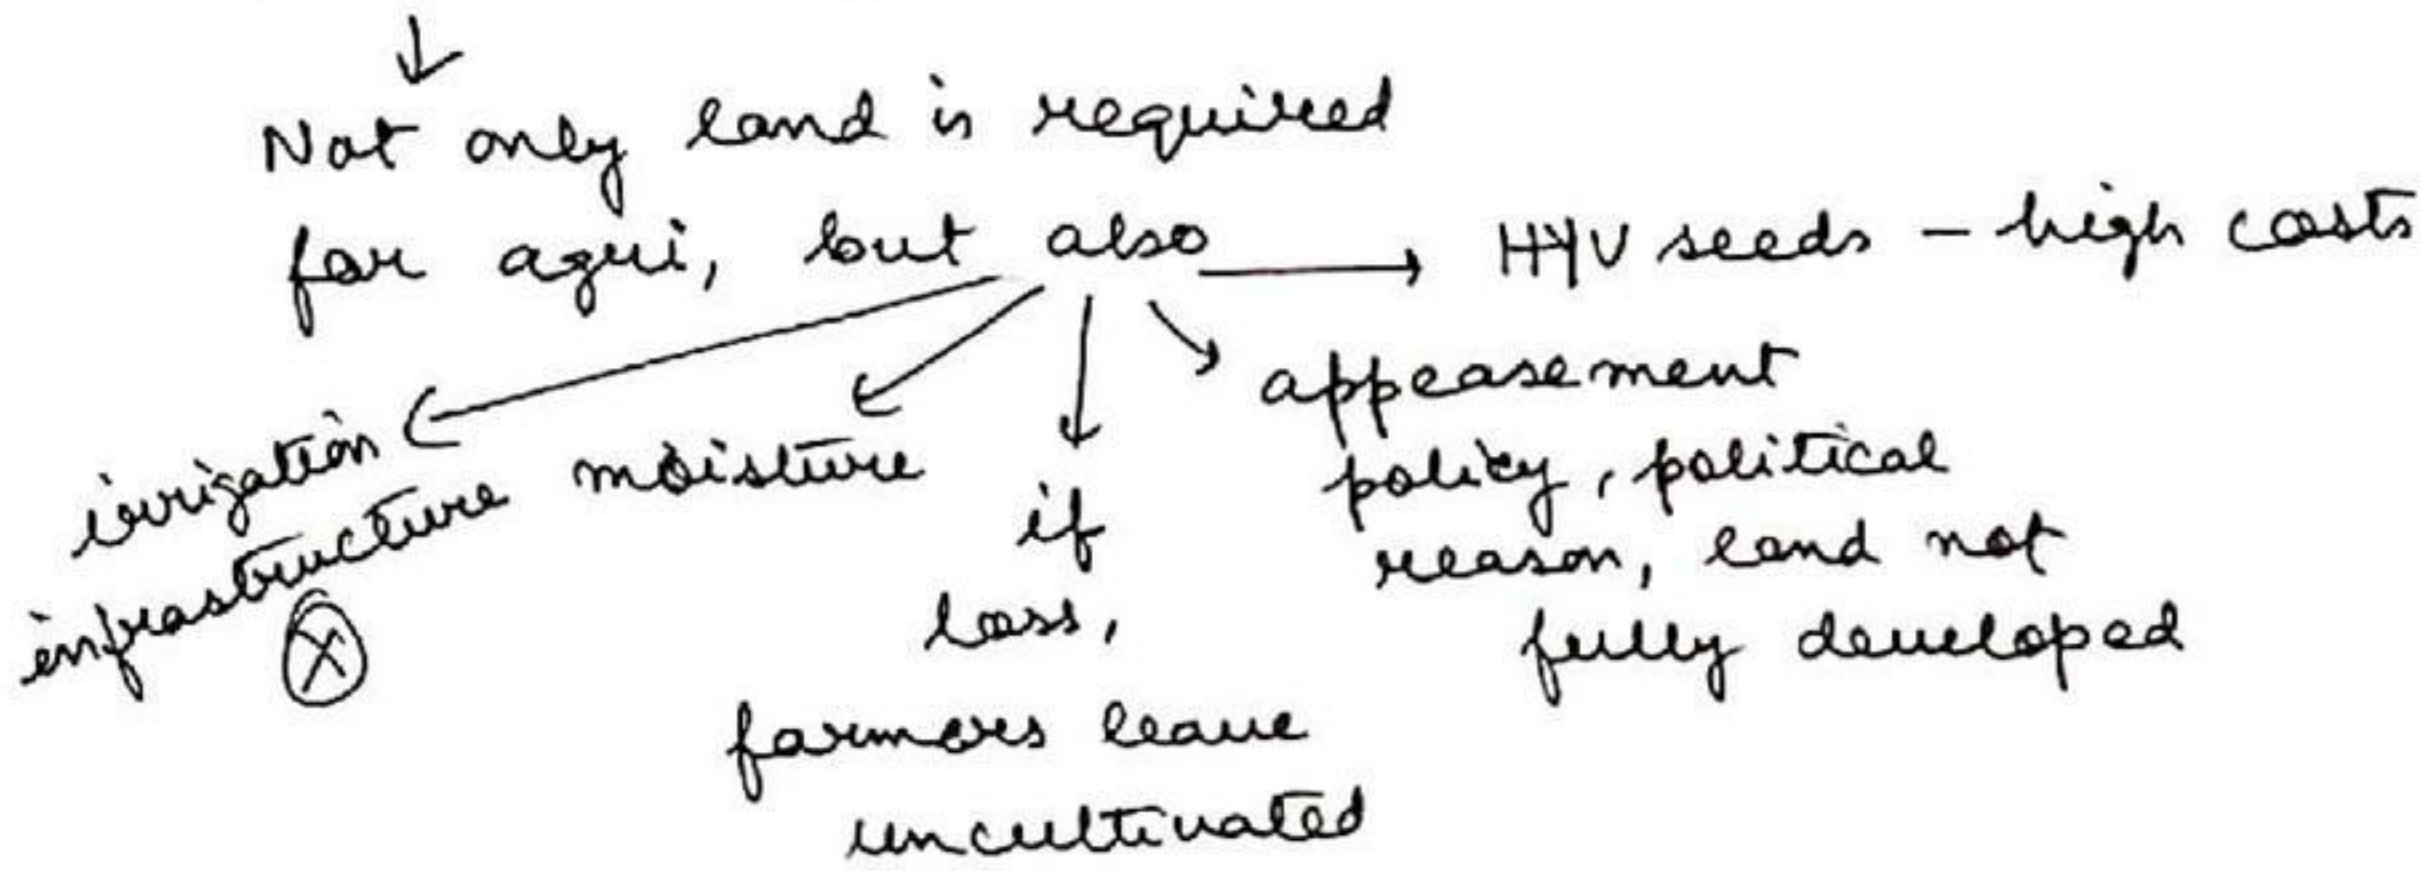 Not only land is required
for agri, but also → HYV seeds - high costs
irrigation
infrastructure
ⓧ
moisture
if
loss,
farmers leave
uncultivated
appeasement
policy, political
reason, land not
fully developed